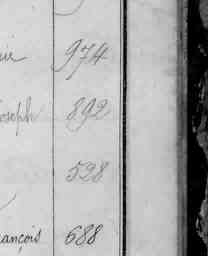 974
oseph 892
528
rançois 688